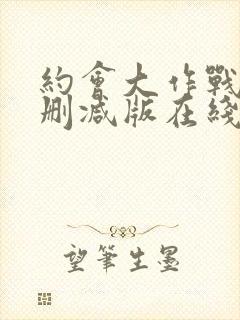 約會大作戰
刪減版在綫
望筆生墨